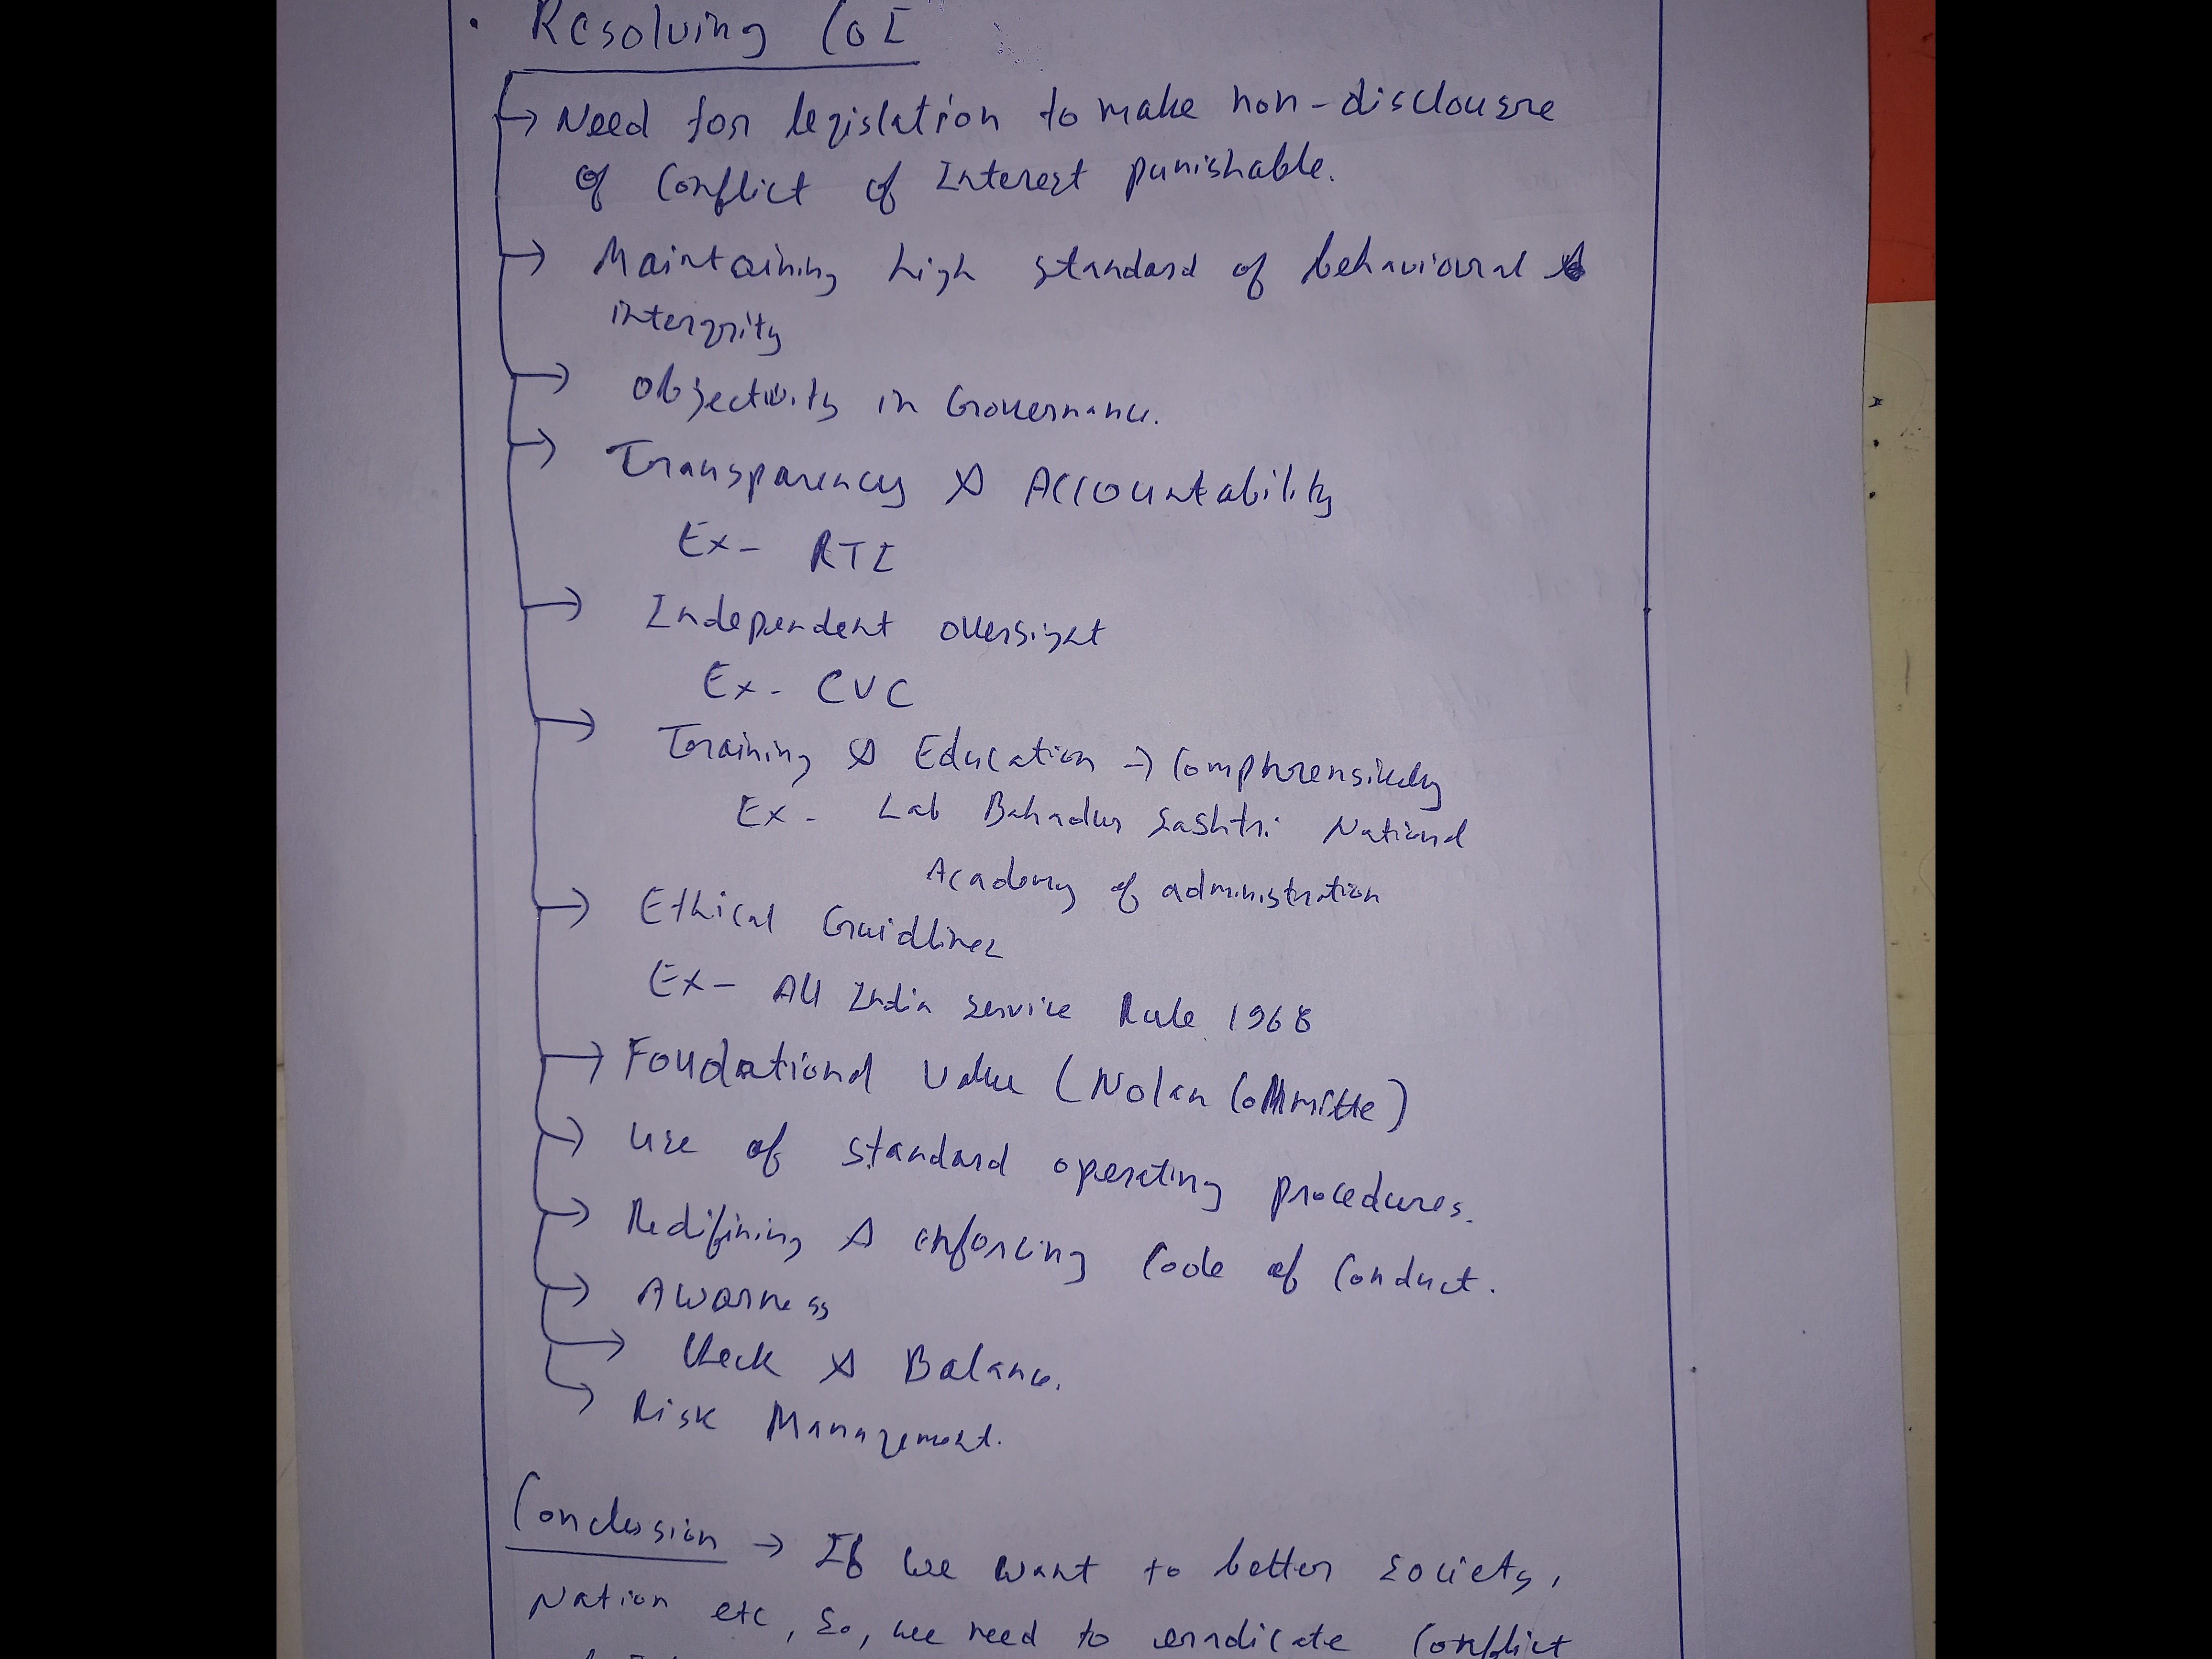 • Resolving CoI
→ Need for legislation to make non-disclousre
of Conflict of Interest punishable.
→ Maintaining high standard of behavioural
intergrity
→ Objectivity in Governance.
→ Transparency & Accountability
Ex- RTI
→ Independent oversight
Ex- CVC
→ Training & Education → Comphrensively
Ex- Lab Bahadur Sashtri National
Academy of administration
→ Ethical Guidlines
Ex- All India Service Rule 1968
→ Foudational Value (Nolan Committe)
→ Use of standard operating procedures.
→ Redifining & enforcing Code of Conduct.
→ Awarness
→ Check & Balance.
→ Risk Management.
Conclusion → If we want to better society,
Nation etc, So, we need to erradicate Conflict